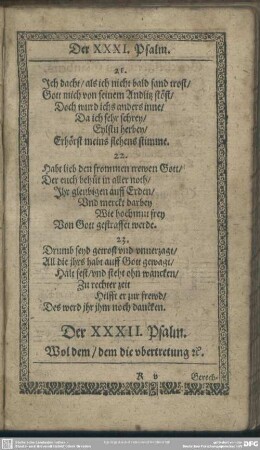 Der XXXI. Psalm.
21.
Ich dacht/ als ich nicht bald fand trost/
Gott mich von seinem Andlitz stöst/
Doch ward ichs anders inne/
Da ich sehr schrey/
Eylstu herbey/
Erhörst meins flehens stimme.
22.
Habt lieb den frommen trewen Gott/
Der euch behüt in aller noth/
Ihr gleubigen auff Erden/
Vnd merckt darbey
Wie hochmut frey
Von Gott gestraffet werde.
23.
Drumb seyd getrost vnd vnuerzagt/
All die ihrs habt auff Gott gewagt/
Halt fest/ vnd steht ohn wancken/
Zu rechter zeit
Hilfft er zur frewd/
Des werd ihr ihm noch dancken.
Der XXXII. Psalm.
Wol dem/ dem die vbertretung ꝛc.
R v
Gerech-
DFG